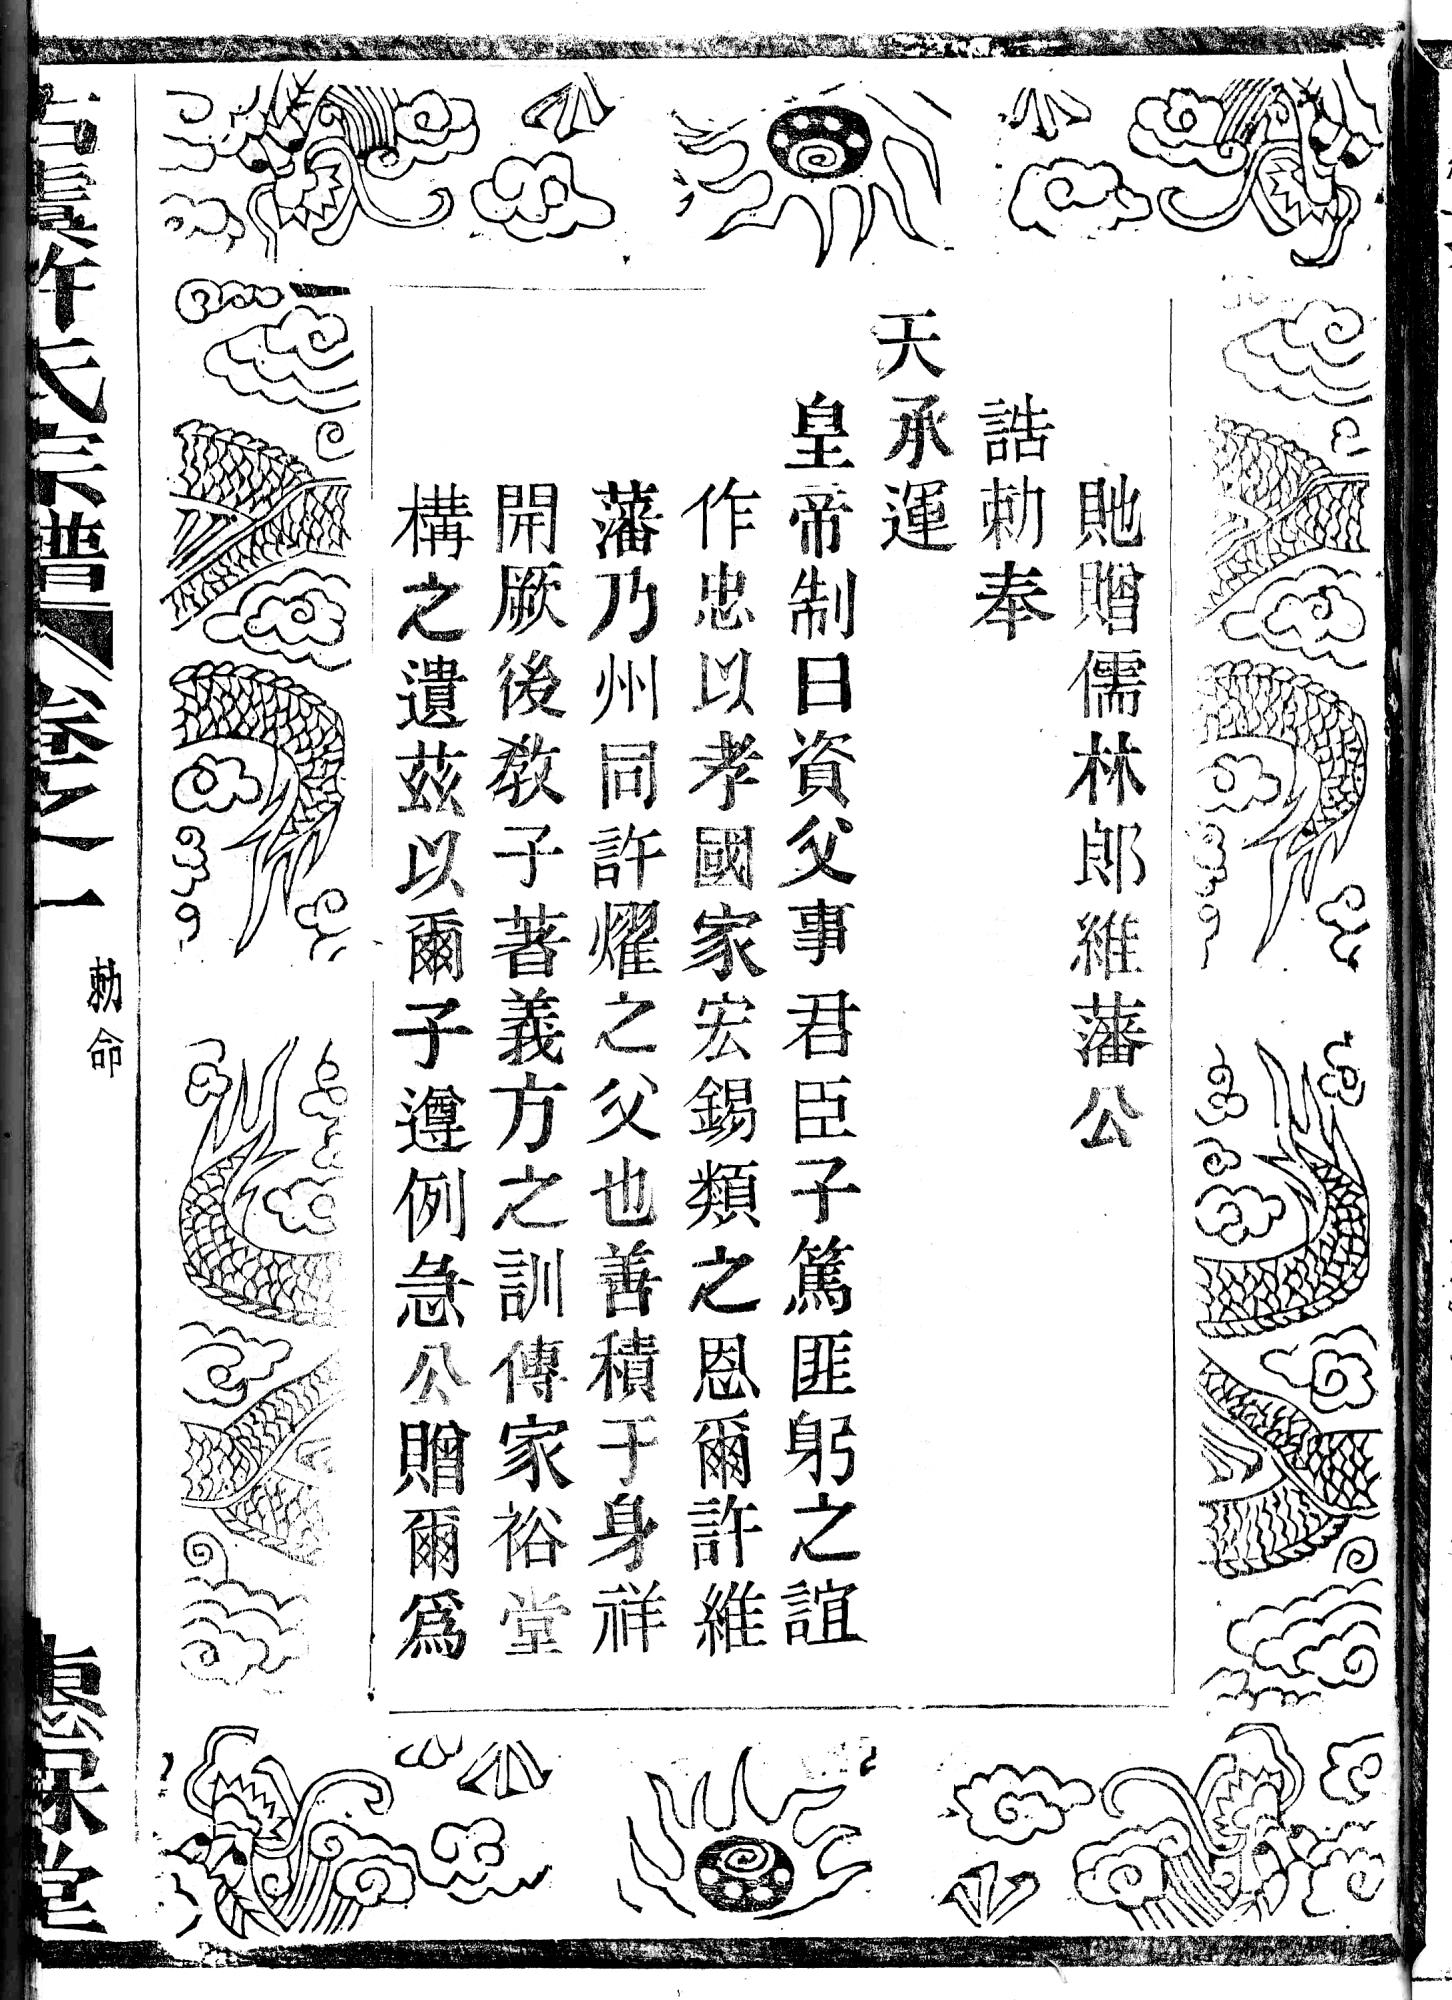 貤贈儒林郎維藩公
誥勅奉
天承運
皇帝制曰資父事君臣子篤匪躬之誼
作忠以孝國家宏錫類之恩爾許維
藩乃州同許燿之父也善積于身祥
開厥後教子著義方之訓傳家裕堂
構之遺茲以爾子遵例急公贈爾爲
許氏宗譜 卷之一 勅命 堂